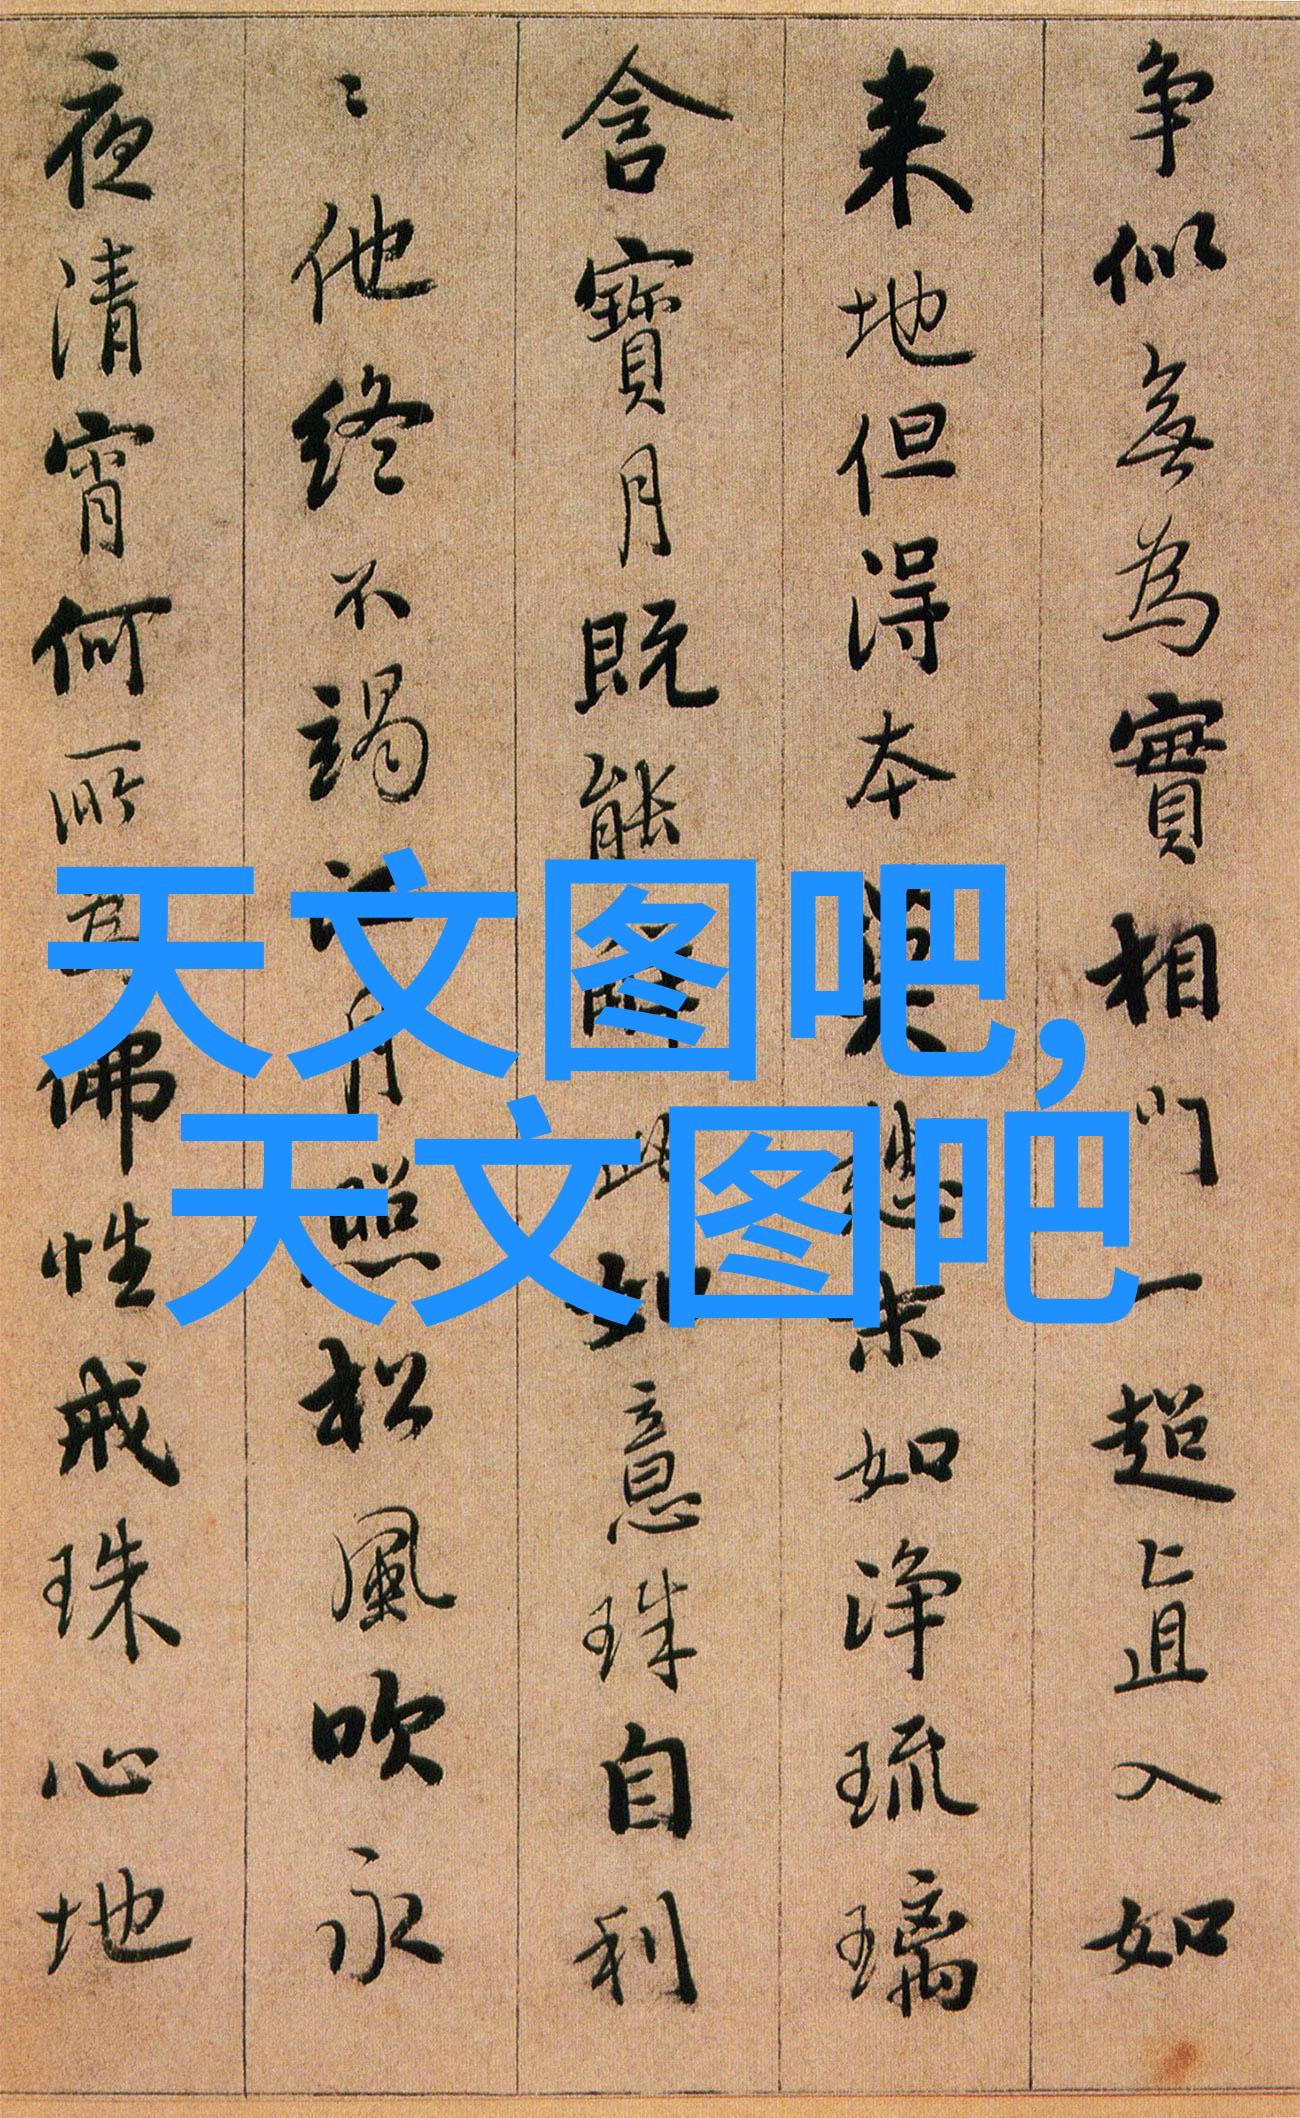 争似無為實相門一超直入如
来地但得本莫愁末如淨琉璃
含寶月既能解此如意珠自利
〻他終不竭江月照松風吹永
夜清宵何所為佛性戒珠心地
天文图吧,
天文图吧